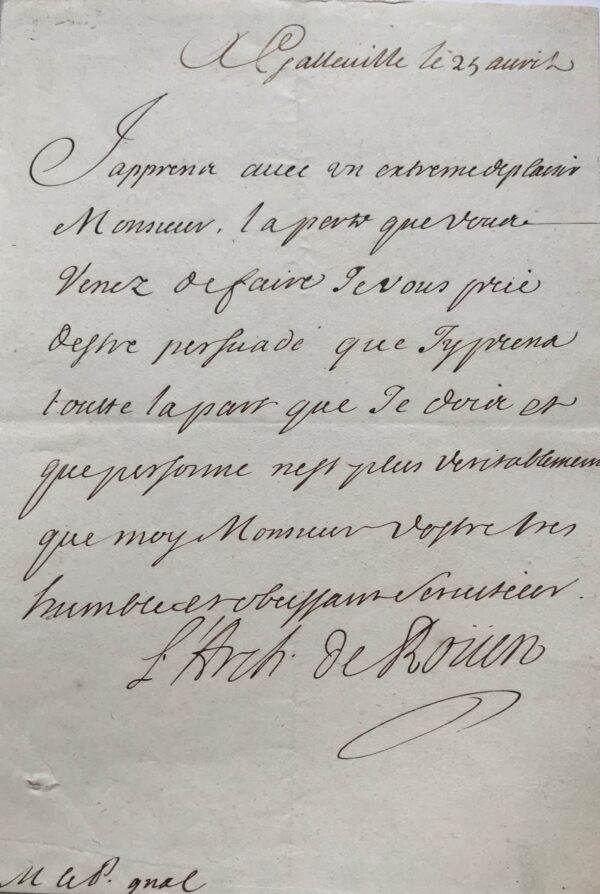 A Galleuille le 25 auril
J'apprens auec vn extreme deplaisir
Monsieur, la perte que vous
Venez de faire Je vous prie
destre persuadé que J'y prens
toutte la part que Je dois et
que personne nest plus veritablement
que moy Monsieur vostre tres
humble et obeissant seruiteur.
L'Arch. de Roüen
M le P. gnal